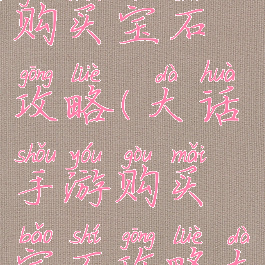 购买宝石
gōng lüè dà huà
攻略(大话
shǒu yóu gòu mǎi
手游购买
bǎo shí gōng lüè dà
宝石攻略大